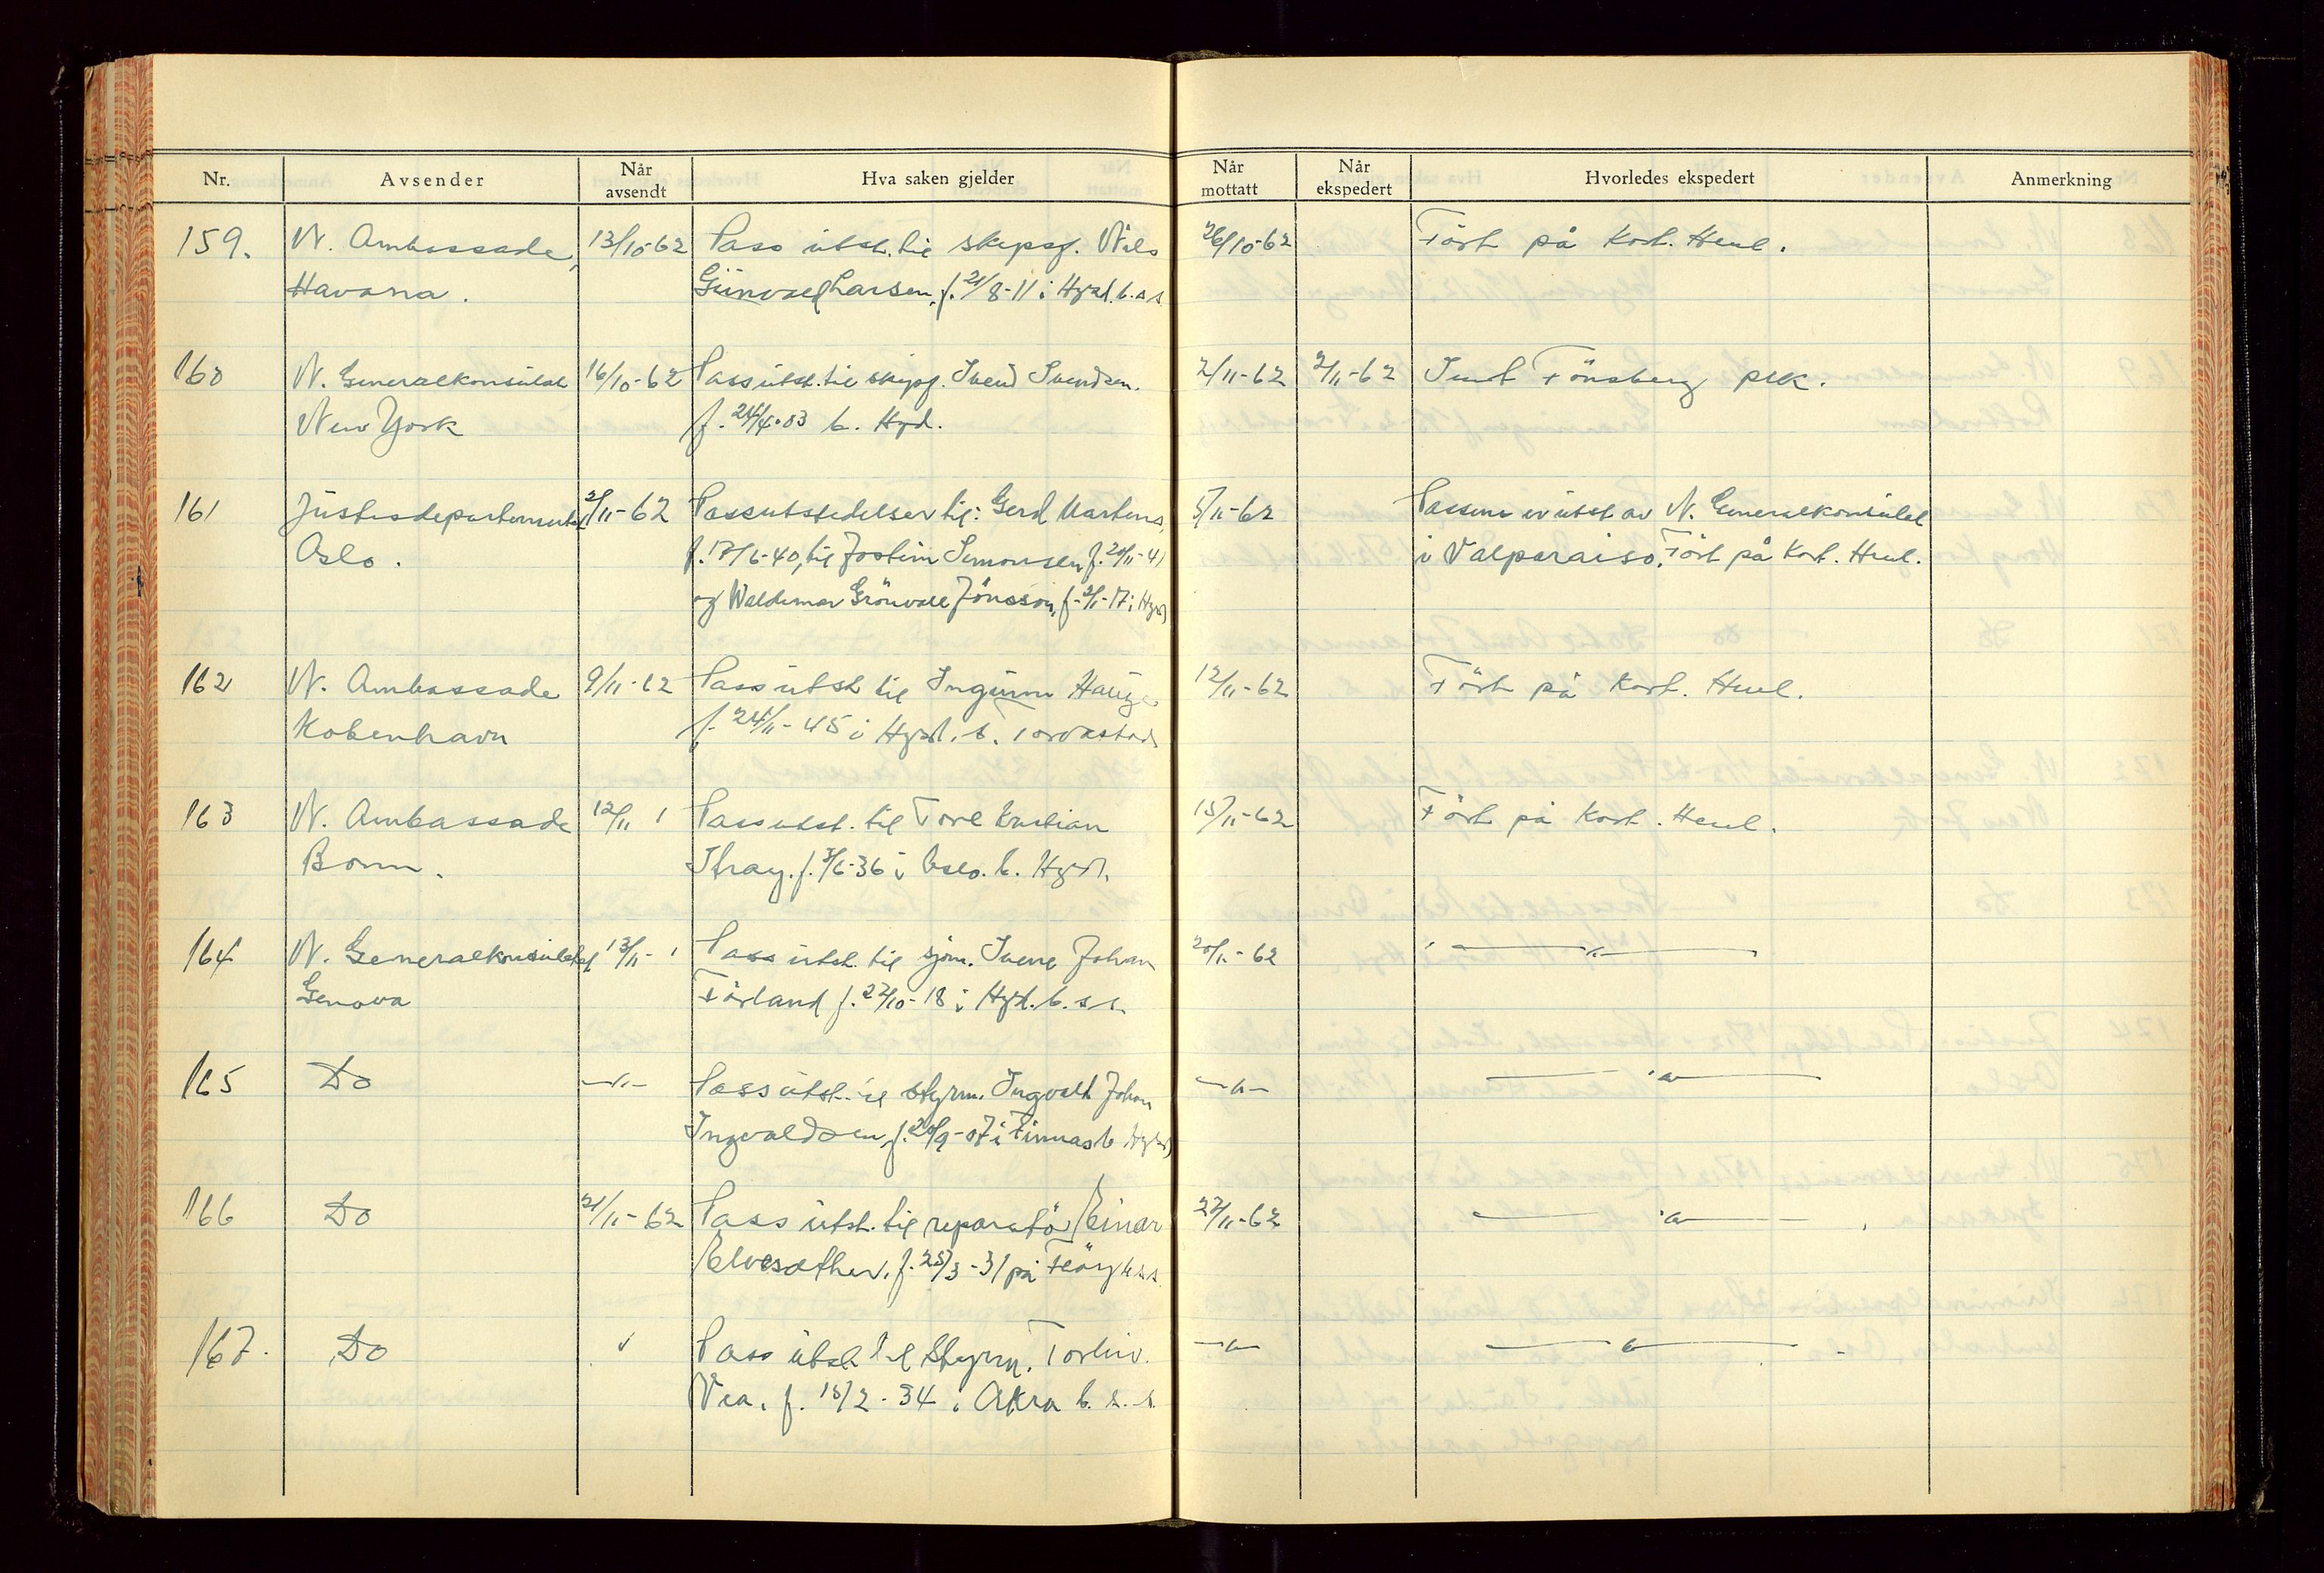 Nr. Avsender Når avsendt Hva saken gjelder Når mottatt Når ekspedert Hvorledes ekspedert Anmerkning
159. N. Ambassade, 13/10-62 Pass utst. til skipsf. Nils 26/10-62 Ført på kort. Henl.
Havana. Larsen, f. 21/8-11 i Hgsd. b. s s
160 N. Generalkonsulat 16/10-62 Pass utst. til skipsf. Svend Svendsen. 2/11-62 2/11-62 Sendt Tønsberg plk.
New York f. 24/4-03 b. Hgd.
161 Justisdepartementet 2/11-62 Passutstedelser til: Gerd Martens, 5/11-62 Passene er utst av N. Generalkonsulat
Oslo. f. 17/6-40, til Jostein Simonsen f. 20/11-41 i Valparaiso. Ført på kort. Henl.
og Waldemar Grönvall Jönsson, f. 2/1-17 i Hgsd
162 N. Ambassade 9/11-62 Pass utst til Ingunn Hauge 12/11-62 Ført på kort. Henl.
København f. 24/11-45 i Hgsd. b. Torvastad
163 N. Ambassade 12/11 Pass utst. til Tore Kristian 15/11-62 Ført på kort. Henl.
Bonn. f. 3/6-36 i Oslo. b. Hgsd.
164 N. Generalkonsulatet 13/11- Pass utst. til sjøm. Sverre Johan 20/11-62 —"—
Genova Førland f. 22/10-18 i Hgd. b. s s.
165 Do —"— Pass utst. til styrm. Ingvald Johan —"— —"—
Ingvaldsen, f. 20/9-07 i Finnås b Hgsd
166 Do 21/11-62 Pass utst. til reparatør Einar 27/11-62 —"—
Elvesæther, f. 25/3-31 på b s s.
167. Do Pass utst til Styrm. Torleiv —"— —"—
Vea, f. 15/2-34 i Åkra b. s. s.